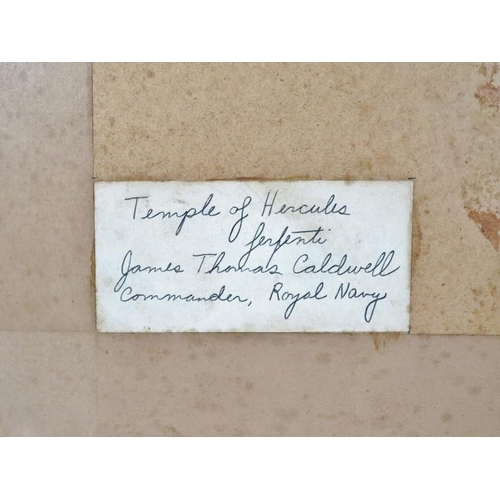 Temple of Hercules
ferfenti
James Thomas Caldwell
Commander, Royal Navy